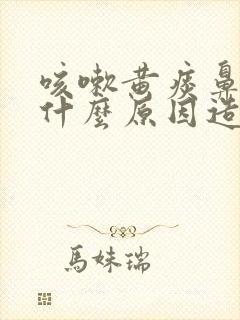 咳嗽黄痰鼻
什麼原因造
馬妹瑞